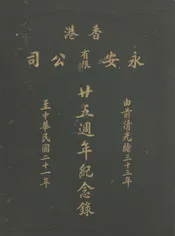 香港
永安有限公司
廿五週年紀念錄
由前清光緒三十三年
至中華民國二十一年